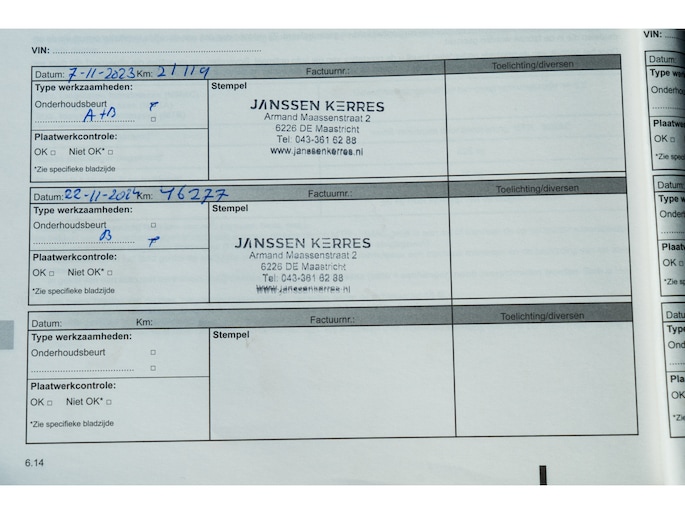 VIN:
Datum: 7-11-2023 Km: 21119 Factuurnr.: Toelichting/diversen
Type werkzaamheden: Stempel
Onderhoudsbeurt
A+B
Plaatwerkcontrole:
OK Niet OK*
*Zie specifieke bladzijde
JANSSEN KERRES
Armand Maassenstraat 2
6226 DE Maastricht
Tel: 043-361 62 88
www.janssenkerres.nl
Datum: 22-11-2024 Km: 46277 Factuurnr.: Toelichting/diversen
Type werkzaamheden: Stempel
Onderhoudsbeurt
B
Plaatwerkcontrole:
OK Niet OK*
*Zie specifieke bladzijde
JANSSEN KERRES
Armand Maassenstraat 2
6226 DE Maastricht
Tel: 043-361 62 88
www.janssenkerres.nl
Datum: Km: Factuurnr.: Toelichting/diversen
Type werkzaamheden: Stempel
Onderhoudsbeurt
Plaatwerkcontrole:
OK Niet OK*
*Zie specifieke bladzijde
6.14
VIN: